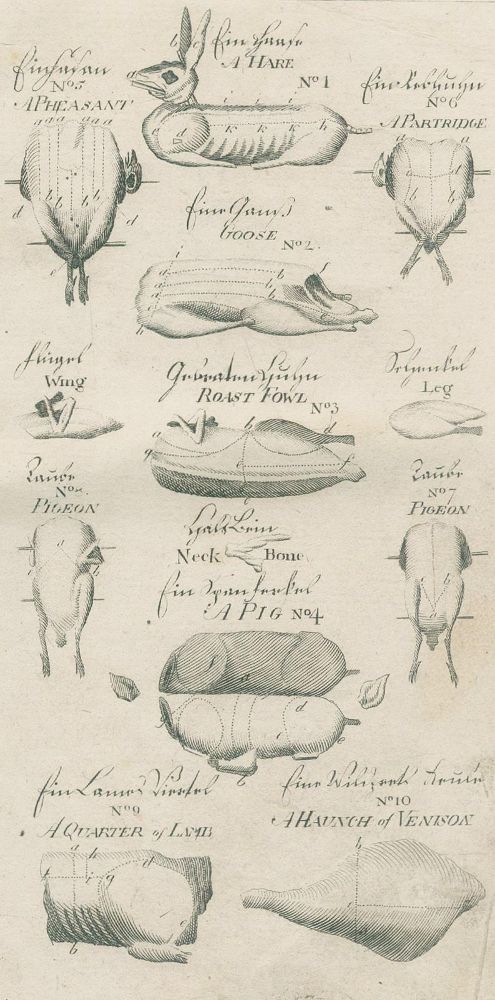 Ein Haase
A HARE
No 1
Ein Fasan
No 5
A PHEASANT
Ein Rebhuhn
No 6
A PARTRIDGE
Eine Gans
GOOSE
No 2.
Flügel
Wing
Gebraten Huhn
ROAST FOWL
No 3
Schenkel
Leg
Taube
PIGEON
Taube
No 7
PIGEON
Hals Bein
Neck Bone
Ein Spanferkel
A PIG No 4
Ein Lams Viertel
No 9
A QUARTER of LAMB
Eine Wildprets Keule
No 10
A HAUNCH of VENISON